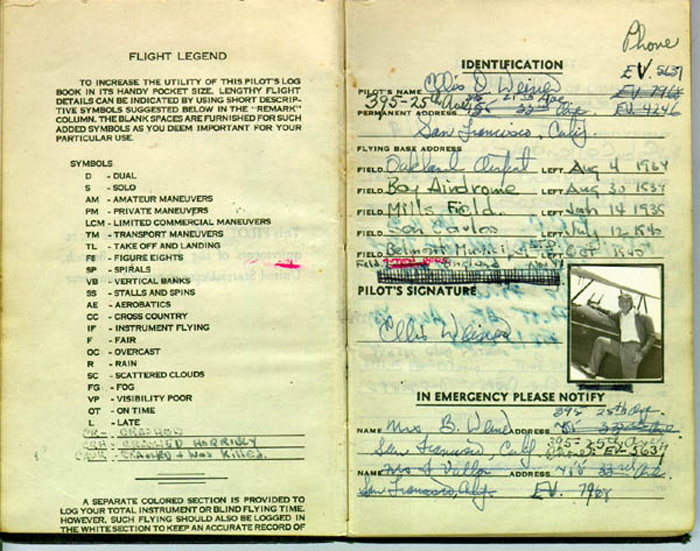 FLIGHT LEGEND
TO INCREASE THE UTILITY OF THIS PILOT'S LOG
BOOK IN ITS HANDY POCKET SIZE, LENGTHY FLIGHT
DETAILS CAN BE INDICATED BY USING SHORT DESCRIP-
TIVE SYMBOLS SUGGESTED BELOW IN THE "REMARK"
COLUMN. THE BLANK SPACES ARE FURNISHED FOR SUCH
ADDED SYMBOLS AS YOU DEEM IMPORTANT FOR YOUR
PARTICULAR USE.
SYMBOLS
D - DUAL
S - SOLO
AM - AMATEUR MANEUVERS
PM - PRIVATE MANEUVERS
LCM - LIMITED COMMERCIAL MANEUVERS
TM - TRANSPORT MANEUVERS
TL - TAKE OFF AND LANDING
F8 - FIGURE EIGHTS
SP - SPIRALS
VB - VERTICAL BANKS
SS - STALLS AND SPINS
AE - AEROBATICS
CC - CROSS COUNTRY
IF - INSTRUMENT FLYING
F - FAIR
OC - OVERCAST
R - RAIN
SC - SCATTERED CLOUDS
FG - FOG
VP - VISIBILITY POOR
OT - ON TIME
L - LATE
CR - CRASHED
CRH - CRASHED HORRIBLY
CRASHED & WAS KILLED.
A SEPARATE COLORED SECTION IS PROVIDED
TO LOG YOUR TOTAL INSTRUMENT OR BLIND FLYING TIME.
HOWEVER, SUCH FLYING SHOULD ALSO BE LOGGED IN
THE WHITE SECTION TO KEEP AN ACCURATE RECORD OF
Phone
EV. 5637
IDENTIFICATION
PILOT'S NAME Ellis D Weiner EV. 7968
395-25th Ave EV. 4246
PERMANENT ADDRESS 33rd Ave
San Francisco, Calif.
FLYING BASE ADDRESS
FIELD Oakland Airport LEFT Aug 4 1934
FIELD Bay Airdrome LEFT Aug 30 1934
FIELD Mill's Field. LEFT Jan 14 1935
FIELD San Carlos LEFT July 12 1940
FIELD Belmont LEFT Oct 1940
Field
PILOT'S SIGNATURE
Ellis Weiner
IN EMERGENCY PLEASE NOTIFY
395 25th Ave.
NAME Mrs. B. Weiner ADDRESS 33rd Ave
San Francisco, Calif. 395-25th Ave.
EV-5637
NAME Mrs ADDRESS 33rd Ave
San Francisco, Calif. EV. 7968